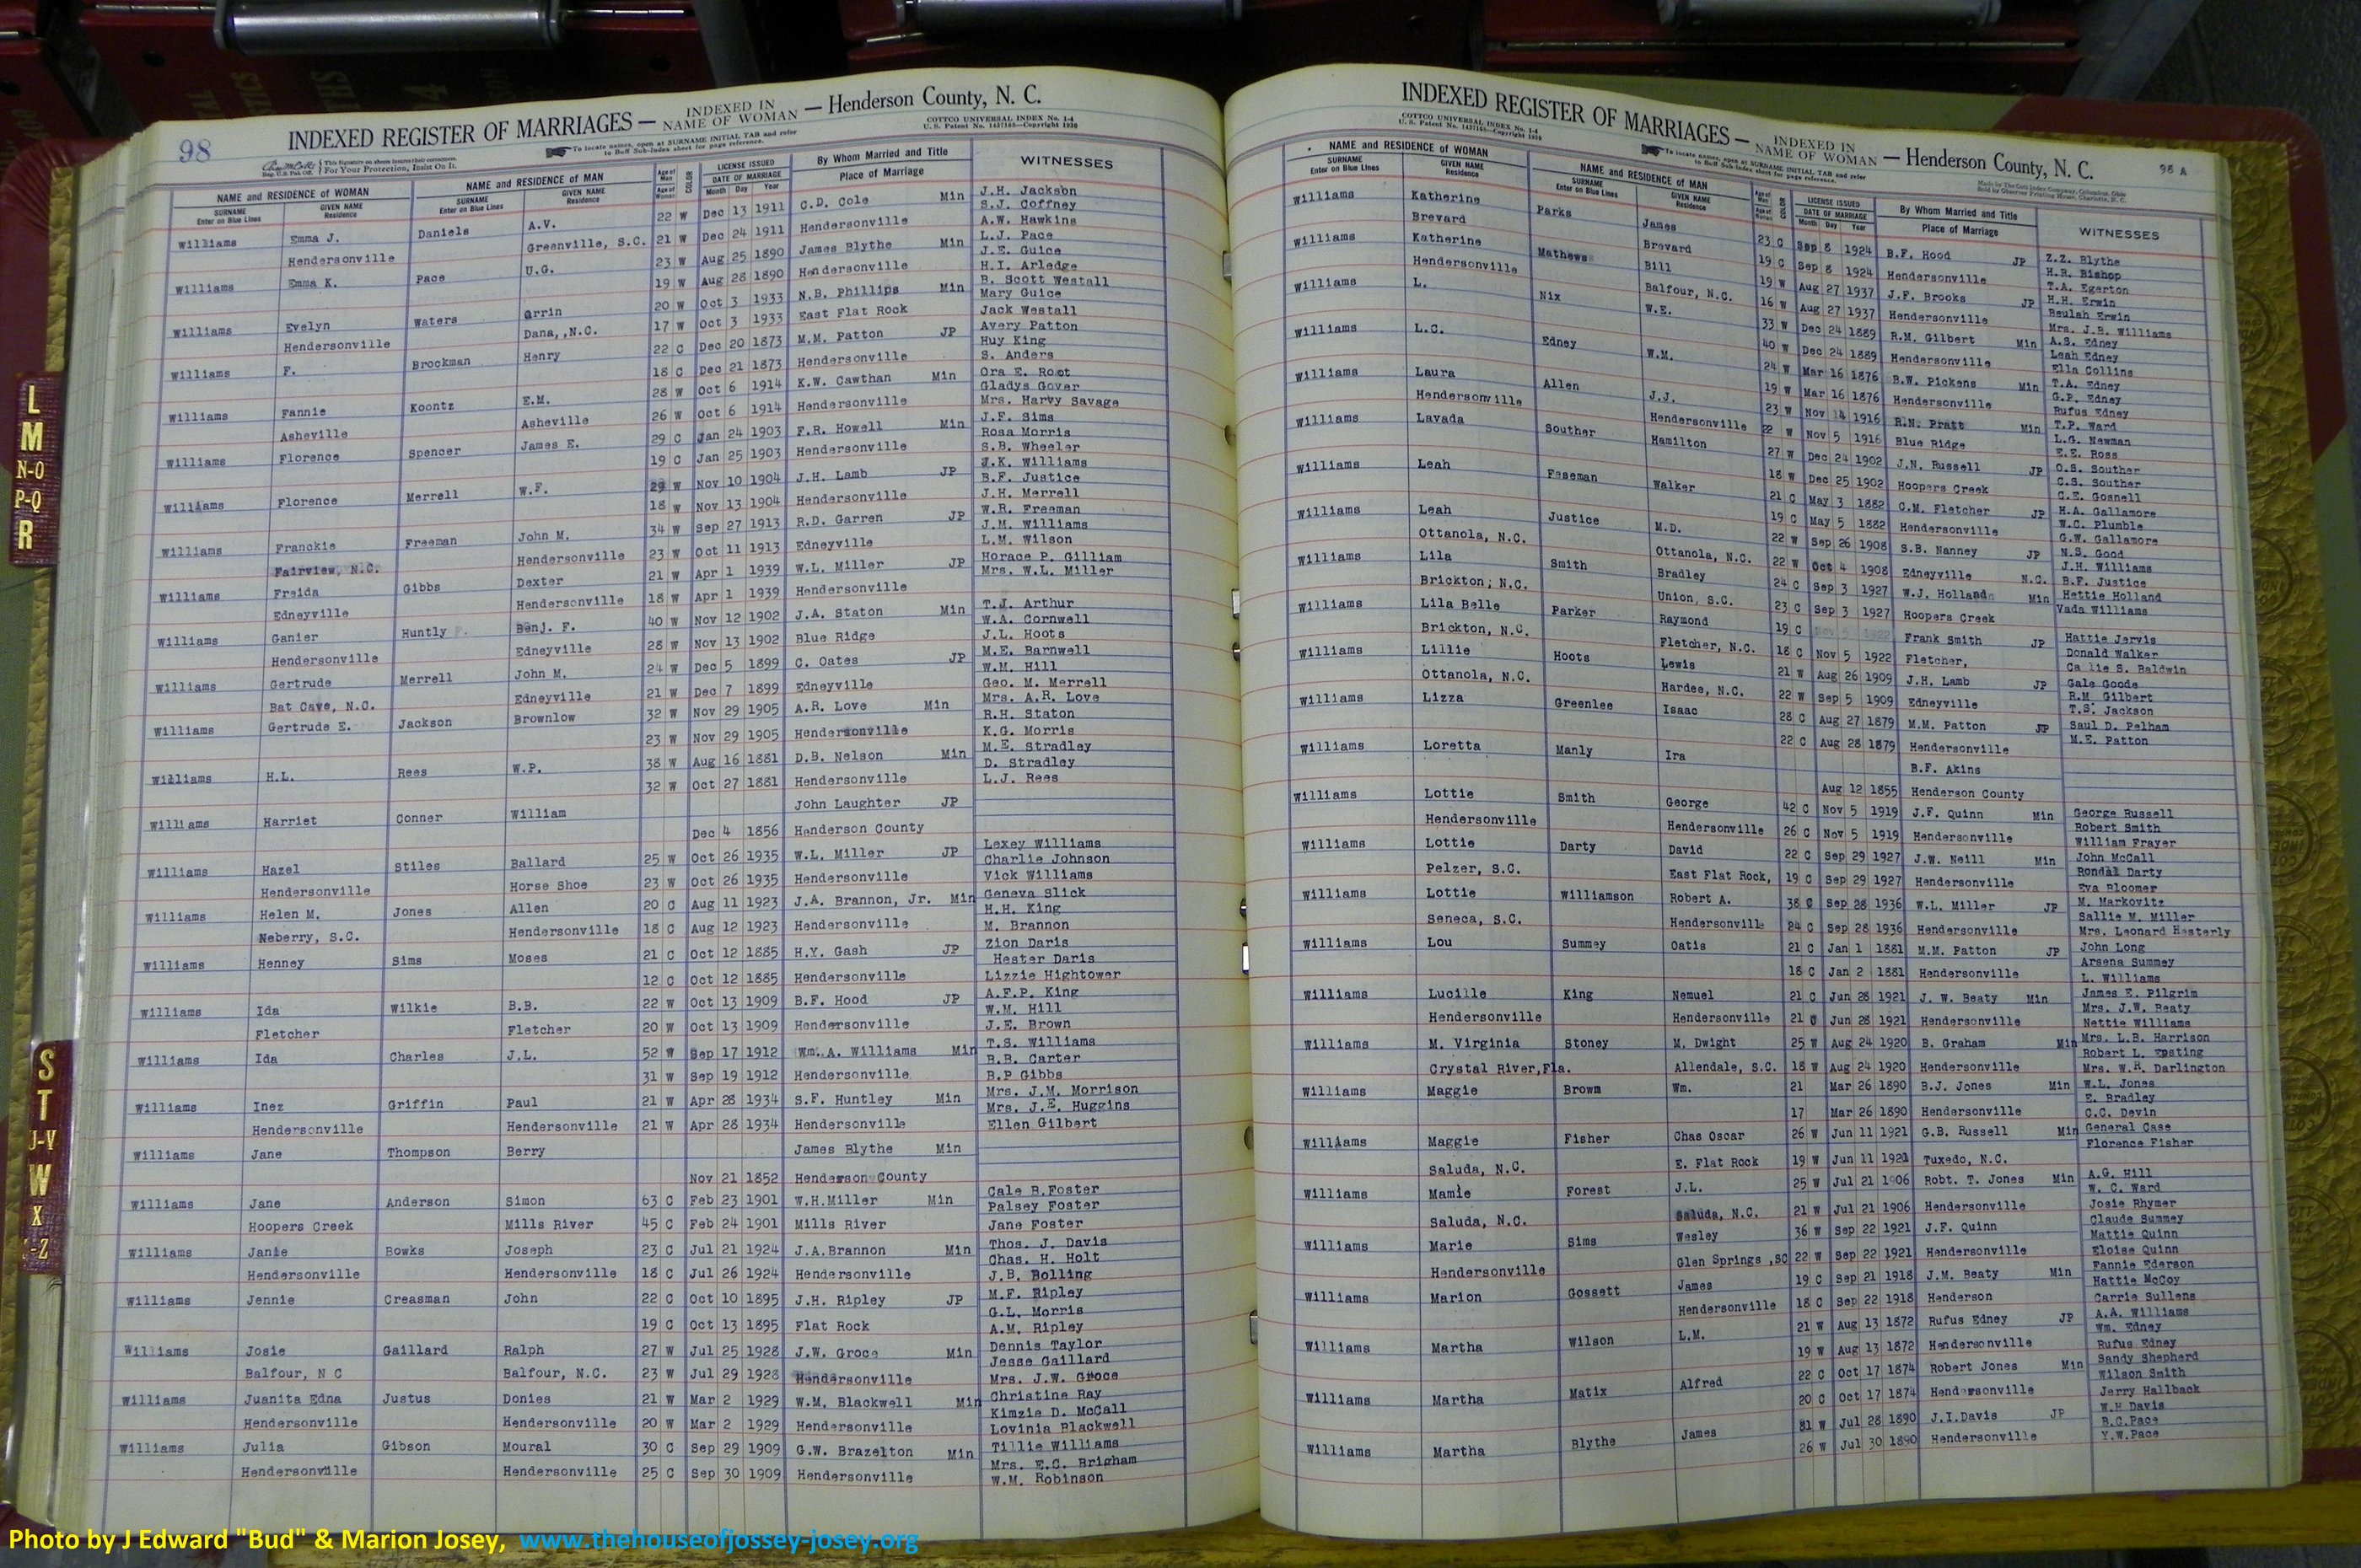 98
INDEXED REGISTER OF MARRIAGES — INDEXED IN NAME OF WOMAN — Henderson County, N. C.
This signature on sheets insures their correctness.
For Your Protection, Insist On It.
To locate names, open at SURNAME INITIAL TAB and refer
to Buff Sub-Index sheet for page reference.
COTTCO UNIVERSAL INDEX No. 1-4
U. S. Patent No. 1437165—Copyright 1930
NAME and RESIDENCE OF WOMAN NAME and RESIDENCE OF MAN Age of Man COLOR LICENSE ISSUED By Whom Married and Title WITNESSES
SURNAME Enter on Blue Lines GIVEN NAME Residence SURNAME Enter on Blue Lines GIVEN NAME Residence Age of Woman DATE OF MARRIAGE Month Day Year Place of Marriage
Williams Emma J. Daniels A.V. 22 W Dec 13 1911 C.D. Cole Min J.H. Jackson
S.J. Coffney
Hendersonville Greenville, S.C. 21 W Dec 24 1911 Hendersonville A.W. Hawkins
Williams Emma K. Pace U.G. 23 W Aug 25 1890 James Blythe Min L.J. Pace
J.E. Guice
19 W Aug 28 1890 Hendersonville H.I. Arledge
Williams Evelyn Waters Orrin 20 W Oct 3 1933 N.B. Phillips Min B. Scott Westall
Mary Guice
Hendersonville Dana,,N.C. 17 W Oct 3 1933 East Flat Rock Jack Westall
Williams F. Brockman Henry 22 C Dec 20 1873 M.M. Patton JP Avery Patton
Huy King
18 C Dec 21 1873 Hendersonville S. Anders
Williams Fannie Koontz E.M. 28 W Oct 6 1914 K.W. Cawthan Min Ora E. Root
Gladys Gover
Asheville Asheville 26 W Oct 6 1914 Hendersonville Mrs. Harvy Savage
Williams Florence Spencer James E. 29 C Jan 24 1903 F.R. Howell Min J.F. Sims
Rosa Morris
19 C Jan 25 1903 Hendersonville S.B. Wheeler
Williams Florence Merrell W.F. 29 W Nov 10 1904 J.H. Lamb JP J.K. Williams
B.F. Justice
18 W Nov 13 1904 Hendersonville J.H. Merrell
Williams Franckie Freeman John M. 34 W Sep 27 1913 R.D. Garren JP W.R. Freeman
J.M. Williams
Fairview, N.C. Hendersonville 23 W Oct 11 1913 Edneyville L.M. Wilson
Williams Freida Gibbs Dexter 21 W Apr 1 1939 W.L. Miller JP Horace P. Gilliam
Mrs. W.L. Miller
Edneyville Hendersonville 18 W Apr 1 1939 Hendersonville
Williams Ganier Huntly Benj. F. 40 W Nov 12 1902 J.A. Staton Min T.J. Arthur
W.A. Cornwell
Hendersonville Edneyville 28 W Nov 13 1902 Blue Ridge J.L. Hoots
Williams Gertrude Merrell John M. 24 W Dec 5 1899 C. Oates JP M.E. Barnwell
W.M. Hill
Bat Cave, N.C. Edneyville 21 W Dec 7 1899 Edneyville Geo. M. Merrell
Williams Gertrude E. Jackson Brownlow 32 W Nov 29 1905 A.R. Love Min Mrs. A.R. Love
R.H. Staton
23 W Nov 29 1905 Hendersonville K.G. Morris
Williams H.L. Rees W.P. 38 W Aug 16 1881 D.B. Nelson Min M.E. Stradley
D. Stradley
32 W Oct 27 1881 Hendersonville L.J. Rees
Williams Harriet Conner William John Laughter JP
Dec 4 1856 Henderson County
Williams Hazel Stiles Ballard 25 W Oct 26 1935 W.L. Miller JP Lexey Williams
Charlie Johnson
Hendersonville Horse Shoe 23 W Oct 26 1935 Hendersonville Vick Williams
Williams Helen M. Jones Allen 20 C Aug 11 1923 J.A. Brannon, Jr. Min Geneva Slick
H.H. King
Neberry, S.C. Hendersonville 18 C Aug 12 1923 Hendersonville M. Brannon
Williams Henney Sims Moses 21 C Oct 12 1885 H.Y. Gash JP Zion Daris
Hester Daris
12 C Oct 12 1885 Hendersonville Lizzie Hightower
Williams Ida Wilkie B.B. 22 W Oct 13 1909 B.F. Hood JP A.F.P. King
W.M. Hill
Fletcher Fletcher 20 W Oct 13 1909 Hendersonville J.E. Brown
Williams Ida Charles J.L. 52 W Sep 17 1912 Wm. A. Williams Min T.S. Williams
B.B. Carter
31 W Sep 19 1912 Hendersonville B.P Gibbs
Williams Inez Griffin Paul 21 W Apr 28 1934 S.F. Huntley Min Mrs. J.M. Morrison
Mrs. J.E. Huggins
Hendersonville Hendersonville 21 W Apr 28 1934 Hendersonville Ellen Gilbert
Williams Jane Thompson Berry James Blythe Min
Nov 21 1852 Henderson County
Williams Jane Anderson Simon 63 C Feb 23 1901 W.H.Miller Min Cale B.Foster
Palsey Foster
Hoopers Creek Mills River 45 C Feb 24 1901 Mills River Jane Foster
Williams Janie Bowks Joseph 23 C Jul 21 1924 J.A.Brannon Min Thos. J. Davis
Chas. H. Holt
Hendersonville Hendersonville 18 C Jul 26 1924 Hendersonville J.B. Bolling
Williams Jennie Creasman John 22 C Oct 10 1895 J.H. Ripley JP M.F. Ripley
G.L. Morris
19 C Oct 13 1895 Flat Rock A.M. Ripley
Williams Josie Gaillard Ralph 27 W Jul 25 1928 J.W. Groce Min Dennis Taylor
Jesse Gaillard
Balfour, N C Balfour, N.C. 23 W Jul 29 1928 Hendersonville Mrs. J.W. Groce
Williams Juanita Edna Justus Donies 21 W Mar 2 1929 W.M. Blackwell Min Christine Ray
Kimzie D. McCall
Hendersonville Hendersonville 20 W Mar 2 1929 Hendersonville Lovinia Blackwell
Williams Julia Gibson Moural 30 C Sep 29 1909 G.W. Brazelton Min Tillie Williams
Mrs. E.C. Brigham
Hendersonville Hendersonville 25 C Sep 30 1909 Hendersonville W.M. Robinson
INDEXED REGISTER OF MARRIAGES — INDEXED IN NAME OF WOMAN — Henderson County, N. C.
98 A
COTTCO UNIVERSAL INDEX No. 1-4
U. S. Patent No. 1437165—Copyright 1930
To locate names, open at SURNAME INITIAL TAB and refer
to Buff Sub-Index sheet for page reference.
Made by The Cott Index Company, Columbus, Ohio
Sold by Observer Printing House, Charlotte, N. C.
NAME and RESIDENCE OF WOMAN NAME and RESIDENCE OF MAN Age of Man COLOR LICENSE ISSUED By Whom Married and Title WITNESSES
SURNAME Enter on Blue Lines GIVEN NAME Residence SURNAME Enter on Blue Lines GIVEN NAME Residence Age of Woman DATE OF MARRIAGE Month Day Year Place of Marriage
Williams Katherine Parks James 23 C Sep 8 1924 B.F. Hood JP Z.Z. Blythe
H.R. Bishop
Brevard Brevard 19 C Sep 8 1924 Hendersonville T.A. Egerton
Williams Katherine Mathews Bill 19 W Aug 27 1937 J.F. Brooks JP H.H. Erwin
Beulah Erwin
Hendersonville Balfour, N.C. 16 W Aug 27 1937 Hendersonville Mrs. J.B. Williams
Williams L. Nix W.E. 33 W Dec 24 1889 R.M. Gilbert Min A.S. Edney
Leah Edney
40 W Dec 24 1889 Hendersonville Ella Collins
Williams L.C. Edney W.M. 24 W Mar 16 1876 B.W. Pickens Min T.A. Edney
G.P. Edney
19 W Mar 16 1876 Hendersonville Rufus Edney
Williams Laura Allen J.J. 23 W Nov 14 1916 R.N. Pratt Min T.P. Ward
L.G. Newman
Hendersonville Hendersonville 22 W Nov 5 1916 Blue Ridge E.E. Ross
Williams Lavada Souther Hamilton 27 W Dec 24 1902 J.N. Russell JP O.S. Souther
C.S. Souther
18 W Dec 25 1902 Hoopers Creek C.E. Gosnell
Williams Leah Feseman Walker 21 C May 3 1882 C.M. Fletcher JP H.A. Gallamore
W.C. Plumble
19 C May 5 1882 Hendersonville G.W. Gallamore
Williams Leah Justice M.D. 22 W Sep 26 1908 S.B. Nanney JP N.S. Good
J.H. Williams
Ottanola, N.C. Ottanola, N.C. 22 W Oct 4 1908 Edneyville N.C. B.F. Justice
Williams Lila Smith Bradley 24 C Sep 3 1927 W.J. Holland Min Hettie Holland
Vada Williams
Brickton; N.C. Union, S.C. 23 C Sep 3 1927 Hoopers Creek
Williams Lila Belle Parker Raymond 19 C Frank Smith JP Hattie Jarvis
Donald Walker
Brickton, N.C. Fletcher, N.C. 18 C Nov 5 1922 Fletcher, Callie S. Baldwin
Williams Lillie Hoots Lewis 21 W Aug 26 1909 J.H. Lamb JP Gale Goode
R.M Gilbert
Ottanola, N.C. Hardee, N.C. 22 W Sep 5 1909 Edneyville T.S. Jackson
Williams Lizza Greenlee Isaac 28 C Aug 27 1879 M.M. Patton JP Saul D. Pelham
M.E. Patton
22 C Aug 28 1879 Hendersonville
Williams Loretta Manly Ira B.F. Akins
Aug 12 1855 Henderson County
Williams Lottie Smith George 42 C Nov 5 1919 J.F. Quinn Min George Russell
Robert Smith
Hendersonville Hendersonville 26 C Nov 5 1919 Hendersonville William Frayer
Williams Lottie Darty David 22 C Sep 29 1927 J.W. Neill Min John McCall
Rondal Darty
Pelzer, S.C. East Flat Rock, 19 C Sep 29 1927 Hendersonville Eva Bloomer
Williams Lottie Williamson Robert A. 38 C Sep 28 1936 W.L. Miller JP M. Markovitz
Sallie M. Miller
Seneca, S.C. Hendersonville 24 C Sep 28 1936 Hendersonville Mrs. Leonard Hesterly
Williams Lou Summey Oatis 21 C Jan 1 1881 M.M. Patton JP John Long
Arsena Summey
18 C Jan 2 1881 Hendersonville L. Williams
Williams Lucille King Nemuel 21 C Jun 28 1921 J. W. Beaty Min James E. Pilgrim
Mrs. J.W. Beaty
Hendersonville Hendersonville 21 C Jun 28 1921 Hendersonville Nettie Williams
Williams M. Virginia Stoney M. Dwight 25 W Aug 24 1920 B. Graham Min Mrs. L.B. Harrison
Robert L. Epsting
Crystal River,Fla. Allendale, S.C. 18 W Aug 24 1920 Hendersonville Mrs. W.R. Darlington
Williams Maggie Brown Wm. 21 Mar 26 1890 B.J. Jones Min W.L. Jones
E. Bradley
17 Mar 26 1890 Hendersonville C.C. Devin
Williams Maggie Fisher Chas Oscar 26 W Jun 11 1921 G.B. Russell Min General Case
Florence Fisher
Saluda, N.C. E. Flat Rock 19 W Jun 11 1921 Tuxedo, N.C.
Williams Mamie Forest J.L. 25 W Jul 21 1906 Robt. T. Jones Min A.G. Hill
W. C. Ward
Saluda, N.C. Saluda, N.C. 21 W Jul 21 1906 Hendersonville Josie Rhymer
Williams Marie Sims Wesley 36 W Sep 22 1921 J.F. Quinn Claude Summey
Mattie Quinn
Hendersonville Glen Springs ,SC 22 W Sep 22 1921 Hendersonville Eloise Quinn
Williams Marion Gossett James 19 C Sep 21 1918 J.M. Beaty Min Fannie Ederson
Hattie McCoy
Hendersonville 18 C Sep 22 1918 Henderson Carrie Sullens
Williams Martha Wilson L.M. 21 W Aug 13 1872 Rufus Edney JP A.A. Williams
Wm. Edney
19 W Aug 13 1872 Hendersonville Rufus Edney
Williams Martha Matix Alfred 22 C Oct 17 1874 Robert Jones Min Sandy Shepherd
Wilson Smith
20 C Oct 17 1874 Hendersonville Jerry Hallback
Williams Martha Blythe James 31 W Jul 28 1890 J.I.Davis JP W.H Davis
B.C.Pace
26 W Jul 30 1890 Hendersonville Y.W.Pace
L
M
N-O
P-Q
R
S
T
U-V
W
X
Photo by J Edward "Bud" & Marion Josey, www.thehouseofjossey-josey.org